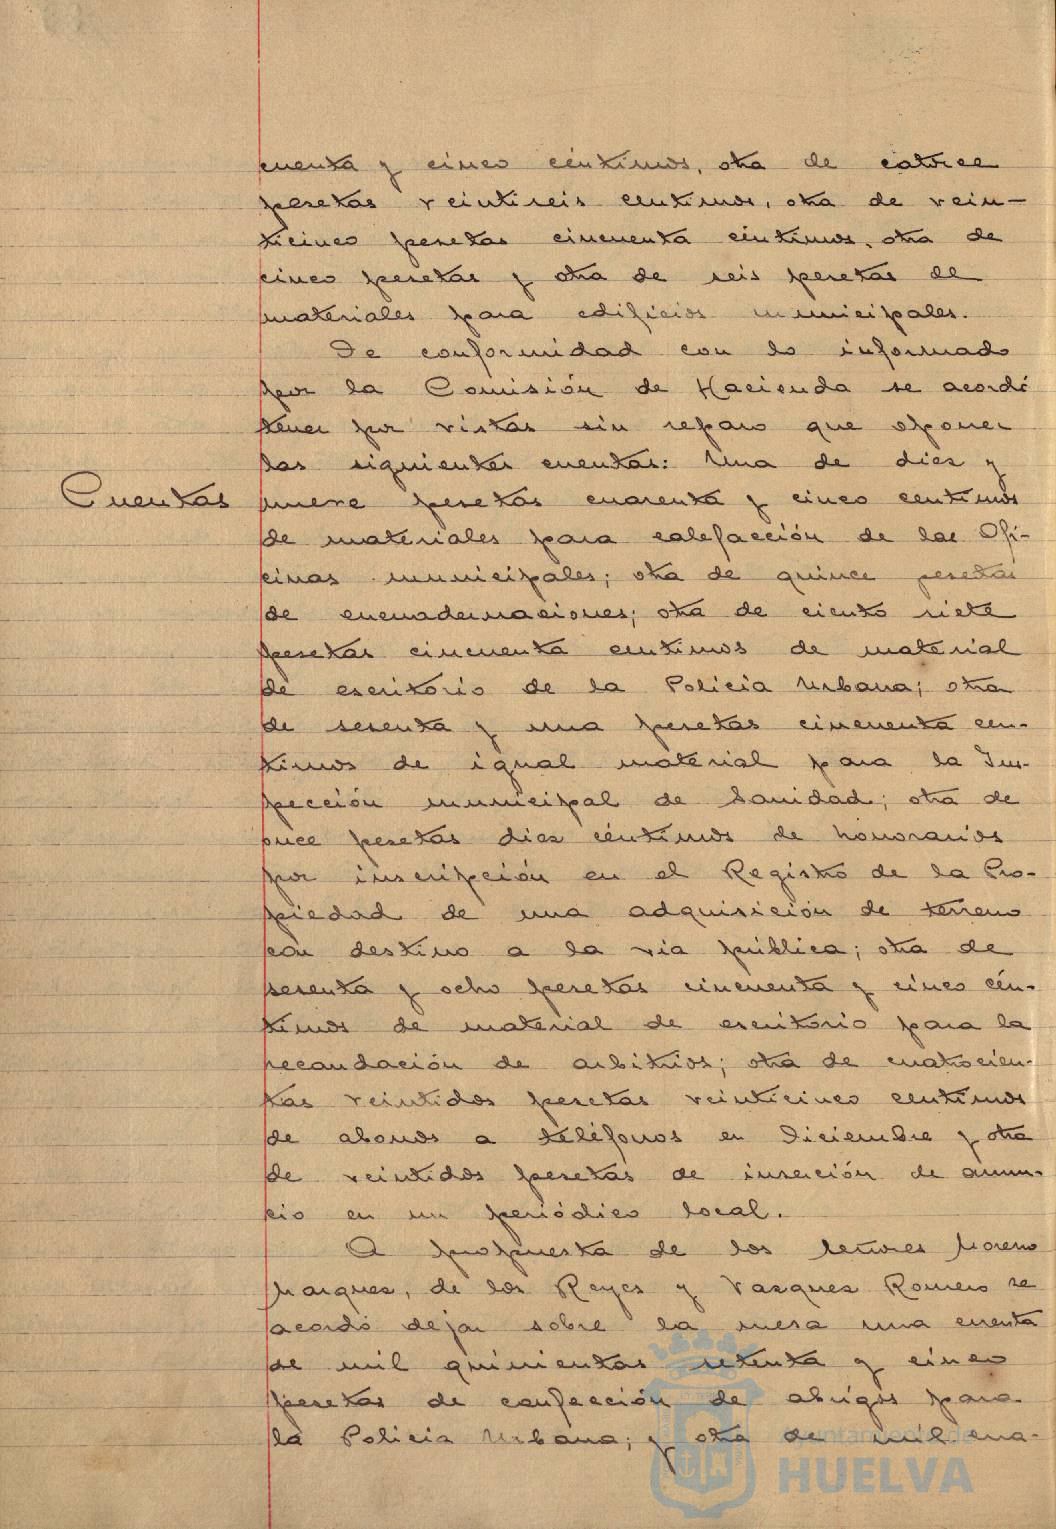 cuenta y cinco céntimos, otra de catorce
pesetas veintiseis centimos, otra de vein-
ticinco pesetas cincuenta céntimos, otra de
cinco pesetas y otra de seis pesetas de
materiales para edificios municipales.
De conformidad con lo informado
por la Comisión de Hacienda se acordó
tener por vistas sin reparo que oponer
las siguientes cuentas: Una de diez y
Cuentas nueve pesetas cuarenta y cinco centimos
de materiales para calefacción de las Ofi-
cinas municipales; otra de quince pesetas
de encuadernaciones; otra de ciento siete
pesetas cincuenta centimos de material
de escritorio de la Policia Urbana; otra
de sesenta y una pesetas cincuenta cen-
timos de igual material para la Ins-
pección municipal de Sanidad; otra de
once pesetas diez céntimos de honorarios
por inscripción en el Registro de la Pro-
piedad de una adquisición de terreno
con destino a la via pública; otra de
sesenta y ocho pesetas cincuenta y cinco cén-
timos de material de escritorio para la
recaudación de arbitrios; otra de cuatrocien-
tas veintidos pesetas veinticinco centimos
de abonos a teléfonos en Diciembre y otra
de veintidos pesetas de inserción de anun-
cio en un periódico local.
A propuesta de los señores Moreno
Marquez, de los Reyes y Vazquez Romero se
acordó dejar sobre la mesa una cuenta
de mil quinientas setenta y cinco
pesetas de confección de abrigos para
la Policia Urbana; y otra de mil cua-
Ayuntamiento de
HUELVA